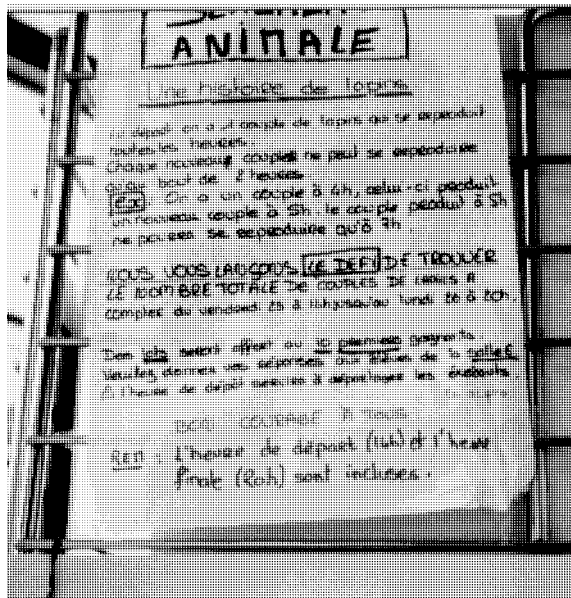 ANIMALE
Une histoire de lapins
départ on a 1 couple de lapins qui se reproduit
toutes les heures.
Chaque nouveau couples ne peut se reproduire
qu'au bout de 2 heures.
Ex: On a un couple à 4h, celui-ci produit
un nouveau couple à 5h. le couple produit à 5h
ne pourra se reproduire qu'à 7h.
NOUS VOUS LANÇONS LE DEFI DE TROUVER
LE NOMBRE TOTALE DE COUPLES DE LAPINS A
compter du vendredi à jusqu'au lundi à 20h.
Des lots seront offert au 10 premiers gagnants.
Veuillez donner vos réponses aux élèves de la
l'heure de dépôt servira à départager les
BON COURAGE A TOUS
REM : L'heure de départ (14h) et l'heure
finale (20h) sont incluses.